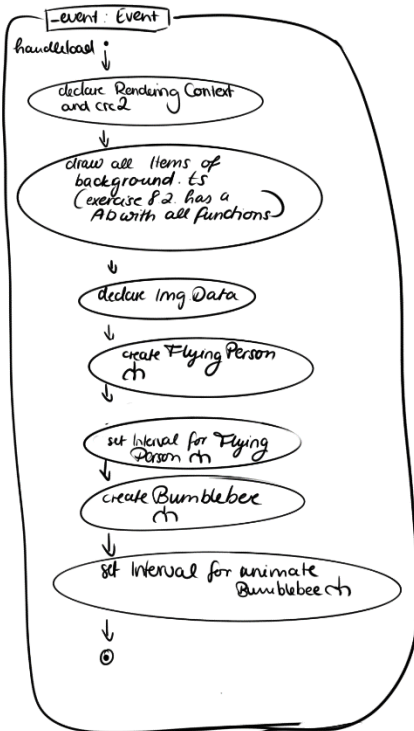 _event: Event
handleload
declare Rendering Context
and crc2
draw all Items of
background.ts
(exercise 8.2. has a
AD with all functions)
declare Img Data
create Flying Person
set Interval for Flying
Person
create Bumblebee
set Interval for animate
Bumblebee